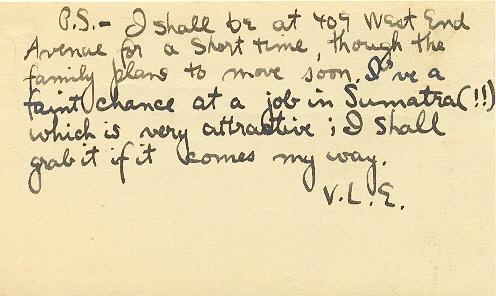 P.S.- I shall be at 409 West End
Avenue for a short time, though the
family plans to move soon. I've a
faint chance at a job in Sumatra(!!)
which is very attractive; I shall
grab it if it comes my way.
V.L.E.